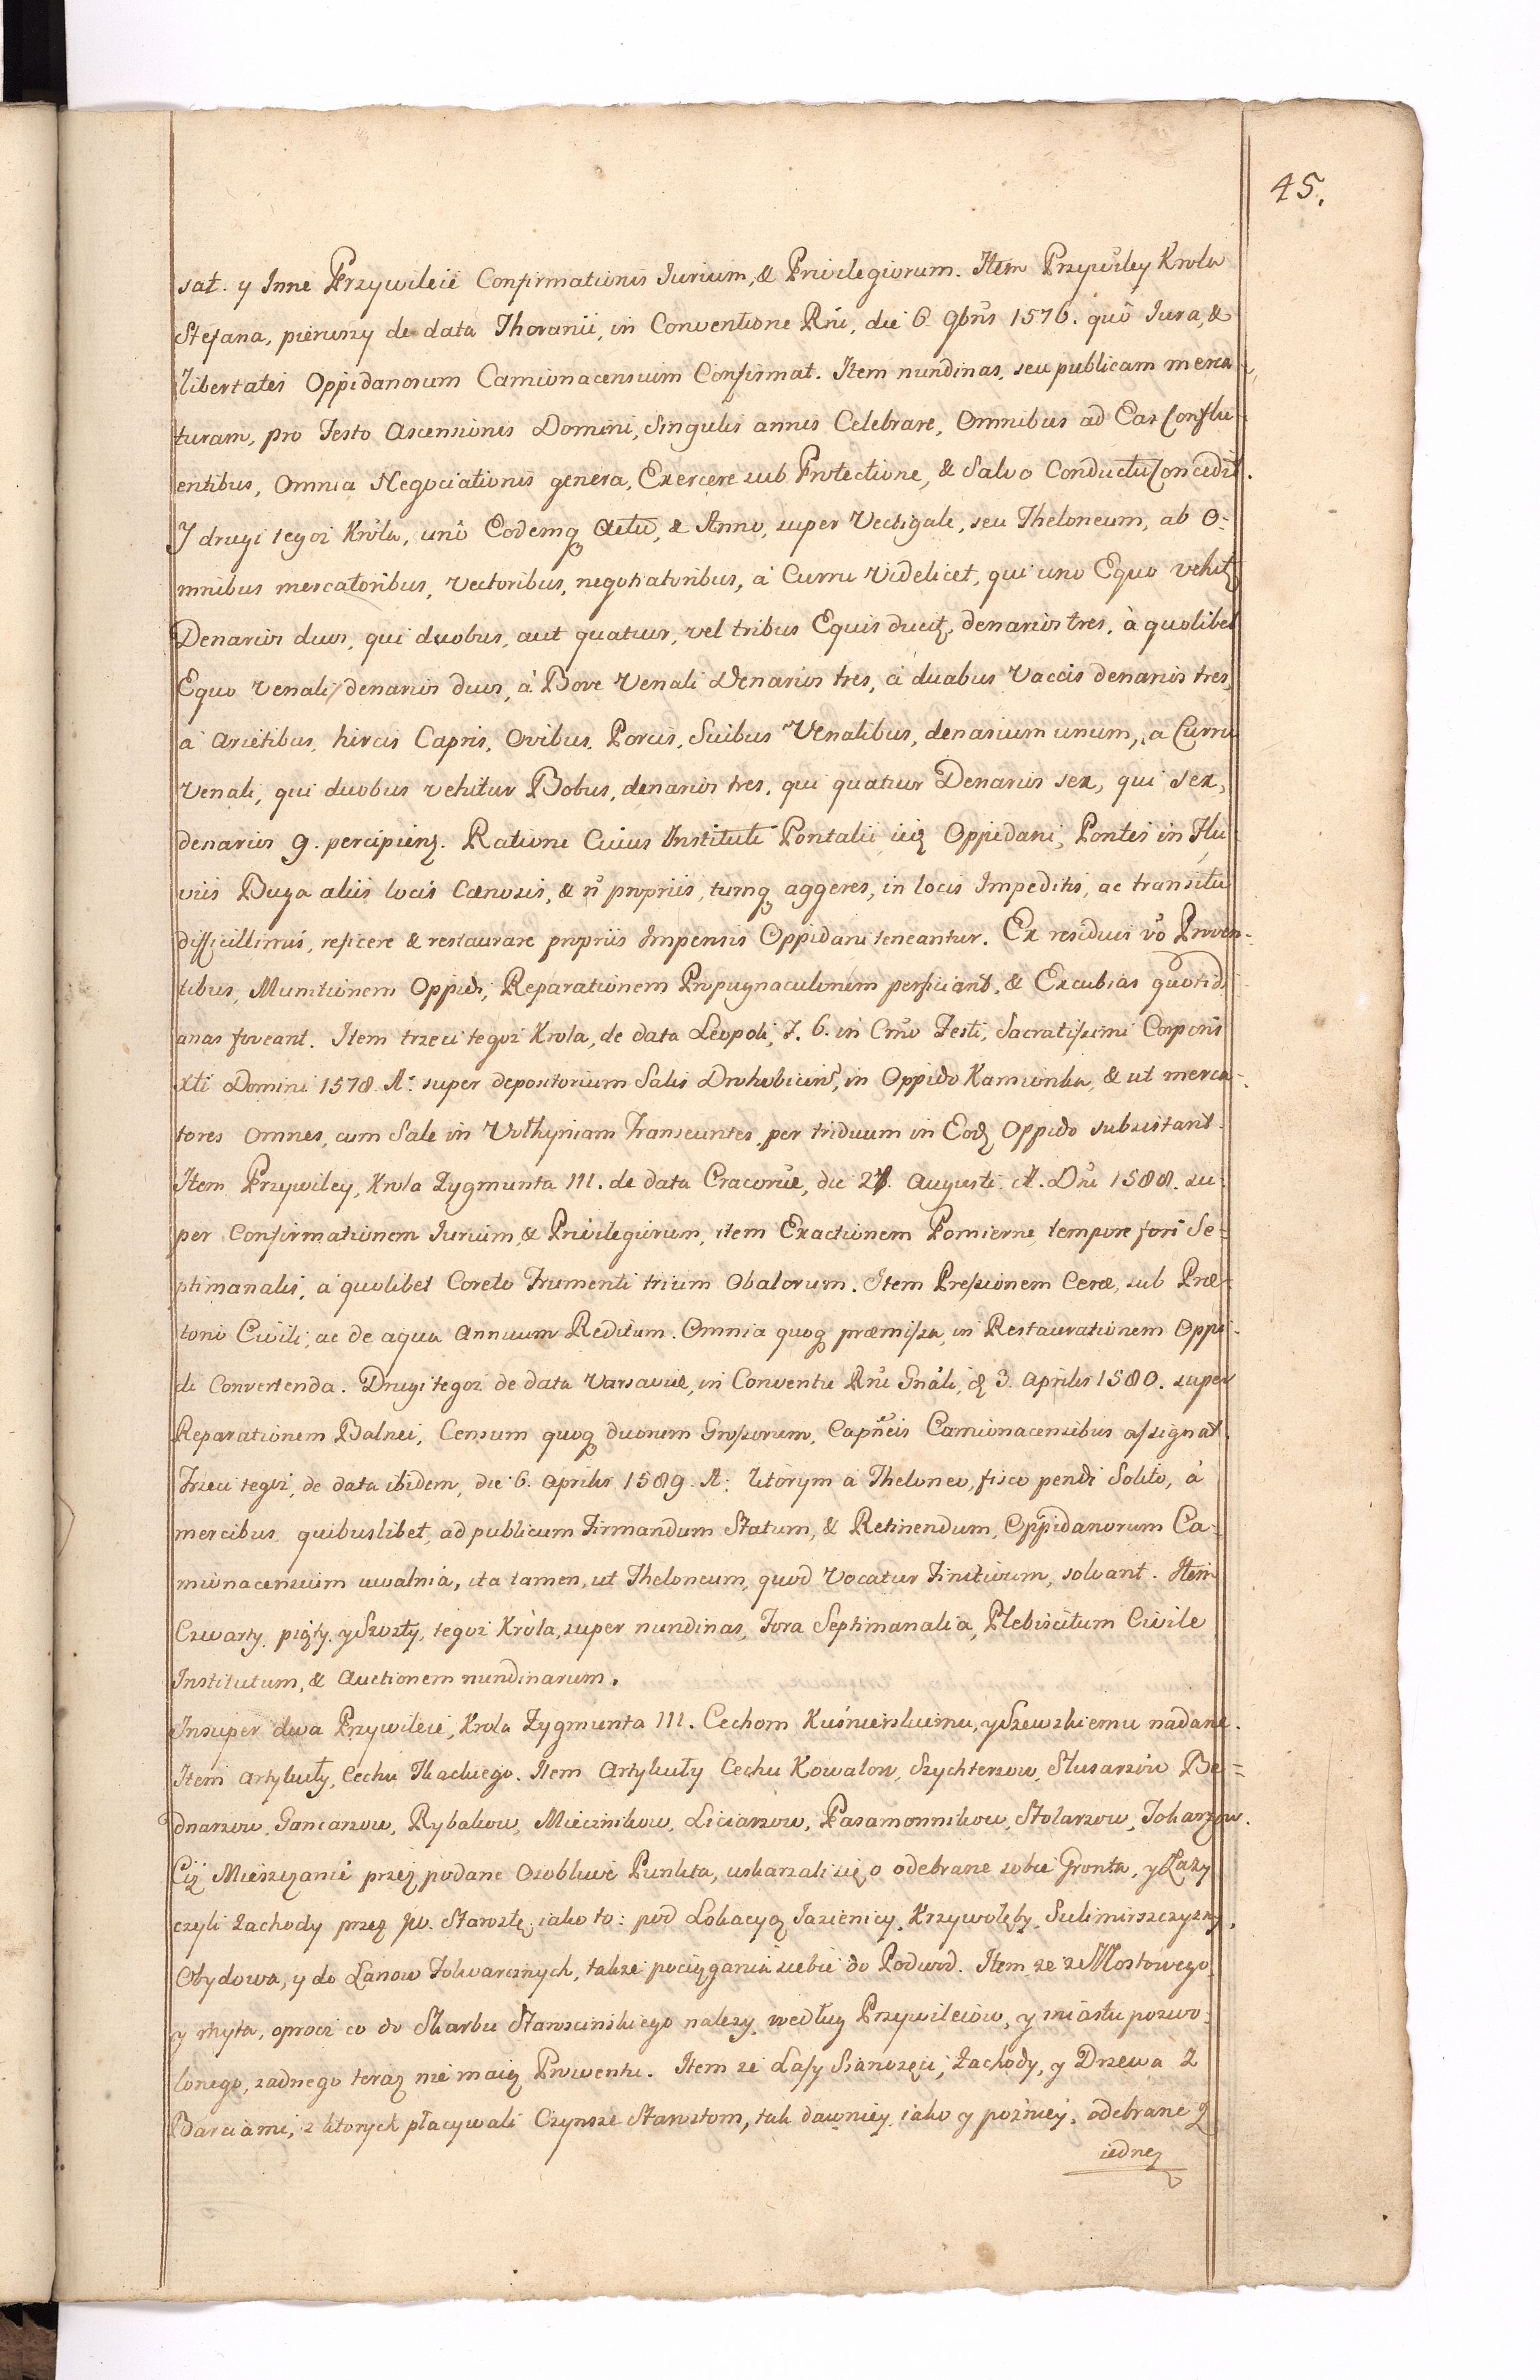 45.
sat. y Inne Przywileie Confirmationis Iurium, & Privilegiorum. Item Przywiley Krola
Stefana, pierwszy de data Thoranii, in Conventione Rñi, die 6 9bris 1576. quô Iura, &
libertates Oppidanorum Camionacensium Confirmat. Item nundinas, seu publicam merca-
turam, pro Festo Ascensionis Domini, Singulis annis Celebrare, Omnibus ad Eas Conflu-
entibus, Omnia Negociationis genera, Exercere sub Protectione, & Salvo Conductu Concedit.
Y drugi tegoż Króla, unô Eodemq Actu, & Anno, super Vectigale, seu Theloneum, ab O-
mnibus mercatoribus, Vectoribus, negotiatoribus, à Curru Videlicet, qui uno Equo vehitz
Denarios duos, qui duobus, aut quatuor, vel tribus Equis ducitz, denarios tres, à quolibet
Equo Venali denarios duos, à Bove Venali Denarios tres, à duabus Vaccis denarios tres,
à Arietibus, hircis Capris, Ovibus, Porcis, Suibus Venalibus, denarium unum, à Curru
Venali, qui duobus vehitur Bobus, denarios tres, qui quatuor Denarios sex, qui sex,
denarios 9. percipienz. Ratione Cuius Instituti Pontalii iiz Oppidani, Pontes in Flu-
viis Buga aliis locis Cœnosis, & ñ propriis, tumq aggeres, in locis Impeditis, ac transitu
difficillimis, reficere & restaurare propriis Impensis Oppidani teneantur. Ex residuis vô Proven-
tibus, Munitionem Oppidi, Reparationem Propugnaculorum perficiant, & Excubias quotidi-
anas foveant. Item trzeci tegoż Krola, de data Leopoli, F. 6. in Crño Festi, Sacratissimi Corporis
Xti Domini 1578. A: super depositorium Salis Drohobicens, in Oppido Kamionka, & ut merca-
tores Omnes, cum Sale in Volhyniam Transeuntes, per triduum in Eodz Oppido subsistant.
Item Przywiley, Krola Zygmunta III. de data Cracoviæ, die Augusti A. Dñi 1588. su-
per Confirmationem Iurium, & Privilegiorum, item Exactionem Pomierne, tempore fori Se-
ptimanalis, à quolibet Coreto Frumenti trium Obalorum. Item Pressionem Ceræ, sub Præ-
torio Civili, ac de aqua Annuum Reditum. Omnia quoq præmissa, in Restaurationem Oppi-
di Convertenda. Drugi tegoż de data Varsaviæ, in Conventu Rñi Gnali, d. 3. Aprilis 1580. super
Reparationem Balnei, Censum quoq duorum Grossorum, Capñeis Camionacensibus assignat.
Trzeci tegoż, de data ibidem, die 6. Aprilis 1589. A: którym à Theloneo, fisco pendi Solito, à
mercibus quibuslibet, ad publicum Firmandum Statum, & Retinendum, Oppidanorum Ca-
mionacensium uwalnia, ita tamen, ut Theloneum, quod Vocatur Finitivum, solvant. Item
Czwarty, piąty, y Szosty, tegoż Króla, super nundinas, Fora Septimanalia, Plebiscitum Civile
Institutum, & Auctionem nundinarum.
Insuper dwa Przywileie, Krola Zygmunta III. Cechom Kuśnierskiemu, y Szewskiemu nadane.
Item Artykuły, Cechu Tkackiego. Item Artykuły Cechu Kowalow, Szychterzow, Slusarzów Be-
dnarzow, Gancarzow, Rybakow, Miecznikow, Liciarzow, Pasamonnikow, Stolarzow, Tokarzow.
Ciż Mieszczanie przez podane Osobliwe Punkta, uskarzali się o odebrane sobie Gronta, y Łazy
czyli Zachody przez Jw. Starostę, iako to: pod Lokacyą Jazienicy, Krzywolęby, Sulimirszczyzny,
Obydowa, y do Łanow Folwarcznych, także pociągania siebie do Podwód. Item że z Mostowego
y myta, oprocz co do Skarbu Starosciñskiego nalezy, według Przywileiow, y miastu pozwo-
lonego, żadnego teraz nie maią Prowentu. Item że Lasy Sianozęci, Zachody, y Drzewa z
Barciami, z ktorych płacywali Czynsze Starostom, tak dawniey, iako y pozniey, odebrane z
iedney